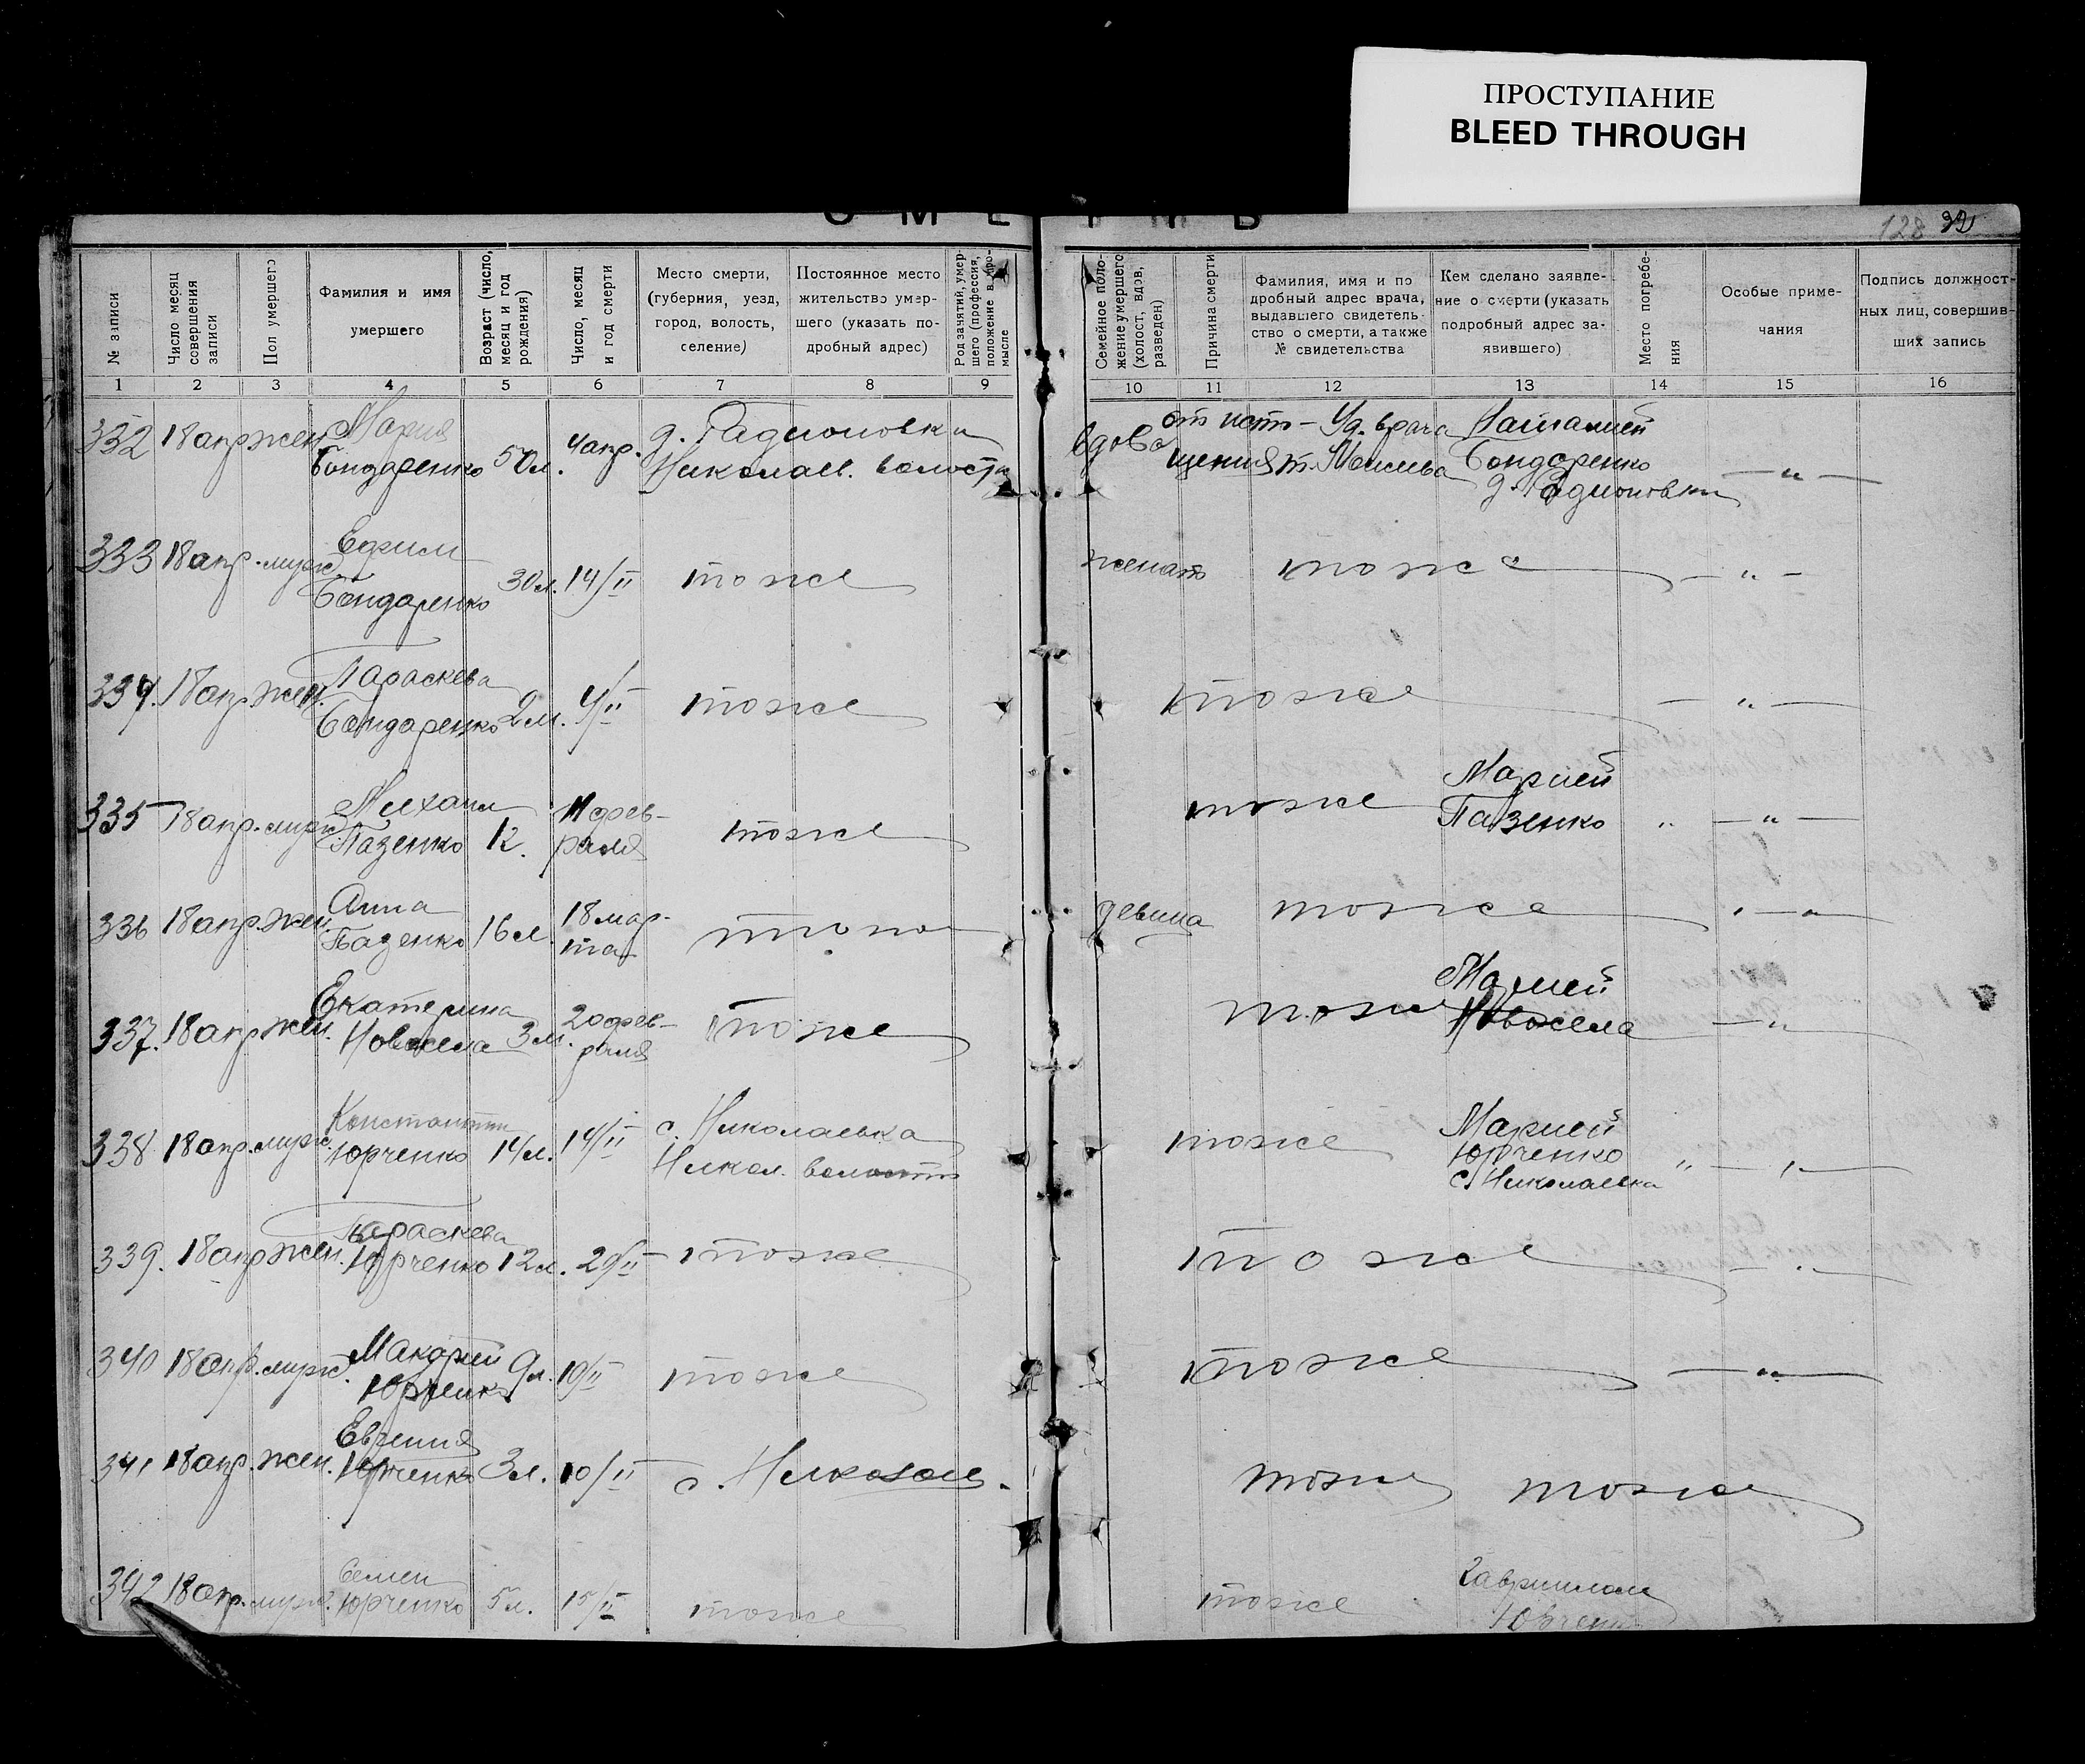 ПРОСТУПАНИЕ
BLEED THROUGH
128 32
№ записи
Число месяц совершения записи
Пол умершего
Фамилия и имя умершего
Возраст (число, месяц и год рождения)
Число, месяц и год смерти
Место смерти, (губерния, уезд, город, волость, селение)
Постоянное место жительство умершего (указать подробный адрес)
Род занятий, умершего (профессия, положение в промысле
Семейное положение умершего (холост, вдов, разведен)
Причина смерти
Фамилия, имя и подробный адрес врача, выдавшего свидетельство о смерти, а также № свидетельства
Кем сделано заявление о смерти (указать подробный адрес заявившего)
Место погребения
Особые примечания
Подпись должностных лиц, совершивших запись
1 2 3 4 5 6 7 8 9 10 11 12 13 14 15 16
332 18 апр жен. Мария Бондаренко 50 л. 4 апр. д. Радионовки Николаев. волости вдова от истощения Уд. врача Наталией Бондаренко д. Радионовки — " —
333 18 апр. муж Ефим Бондаренко 30 л. 14/II тоже женат тоже — " —
334. 18 апр. жен. Параскева Бондаренко 2 м. 4/II тоже тоже — " —
335 18 апр. муж. Михаил Пазенко 12. 11 февраля тоже тоже Марией Пазенко " — " —
336 18 апр. жен. Анна Пазенко 16 л. 18 марта девица тоже
337. 18 апр жен. Екатерина Новосела 3 м. 20 февраля тоже тоже Марией Новосела — "
338 18 апр. муж. Константин Юрченко 14 л. 14/II с. Николаевка Никол. волости тоже Марией Юрченко с. Николаевка " — " —
339. 18 апр жен. Параскева Юрченко 12 л. 29/II тоже тоже
340 18 апр. муж. Макарий Юрченко 9 л. 10/II тоже тоже — " —
341 18 апр. жен. Евгения Юрченко 3 л. 10/II с. Николаев. тоже тоже
342 18 апр. муж. Семен Юрченко 5 л. 15/II тоже тоже Гавриилом Юрчен